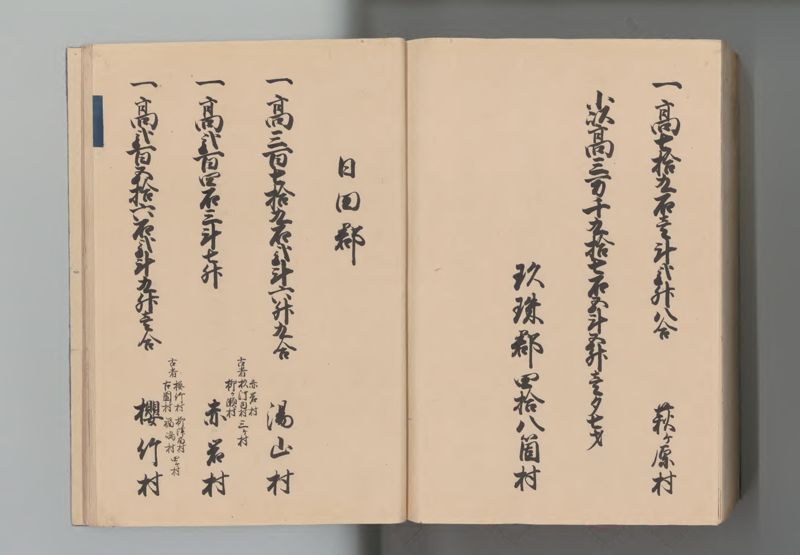 一高七拾九石壱斗弐升八合 萩ヶ原村
小以高三万千九拾七石五斗五升壱夕七才
玖珠郡四拾八箇村
日田郡
一高三百七拾九石弐斗六升九合 湯山村
一高弐百四石三斗七升 赤岩村
古者
赤岩村
杦河内村
柳ヶ瀬村
三ヶ村
一高弐百五拾六石弐斗九升壱合 櫻竹村
古者
桜竹村
四ヶ村